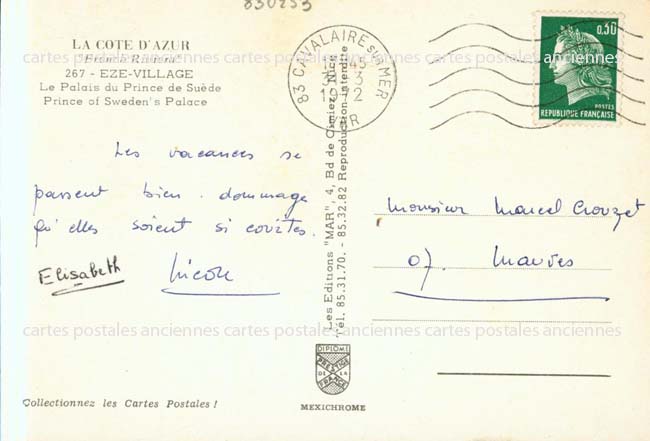 830253
LA COTE D'AZUR
"French Riviera"
267 - EZE-VILLAGE
Le Palais du Prince de Suède
Prince of Sweden's Palace
83 CAVALAIRE S/ MER
1972
VAR
0,30
POSTES
REPUBLIQUE FRANÇAISE
Les vacances se
passent bien. dommage
qu'elles soient si courtes.
Elisabeth
Nicole
Les Editions "MAR", 4, Bd de Cimiez, Nice
Tél. 85.31.70. - 85.32.82 Reproduction interdite
Monsieur Marcel Crouzet
07. Mauves
cartes postales anciennes cartes postales anciennes cartes postales anciennes
cartes postales anciennes cartes postales anciennes cartes postales anciennes
DIPLOME
PRESTIGE
DE LA
FRANCE
Collectionnez les Cartes Postales !
MEXICHROME